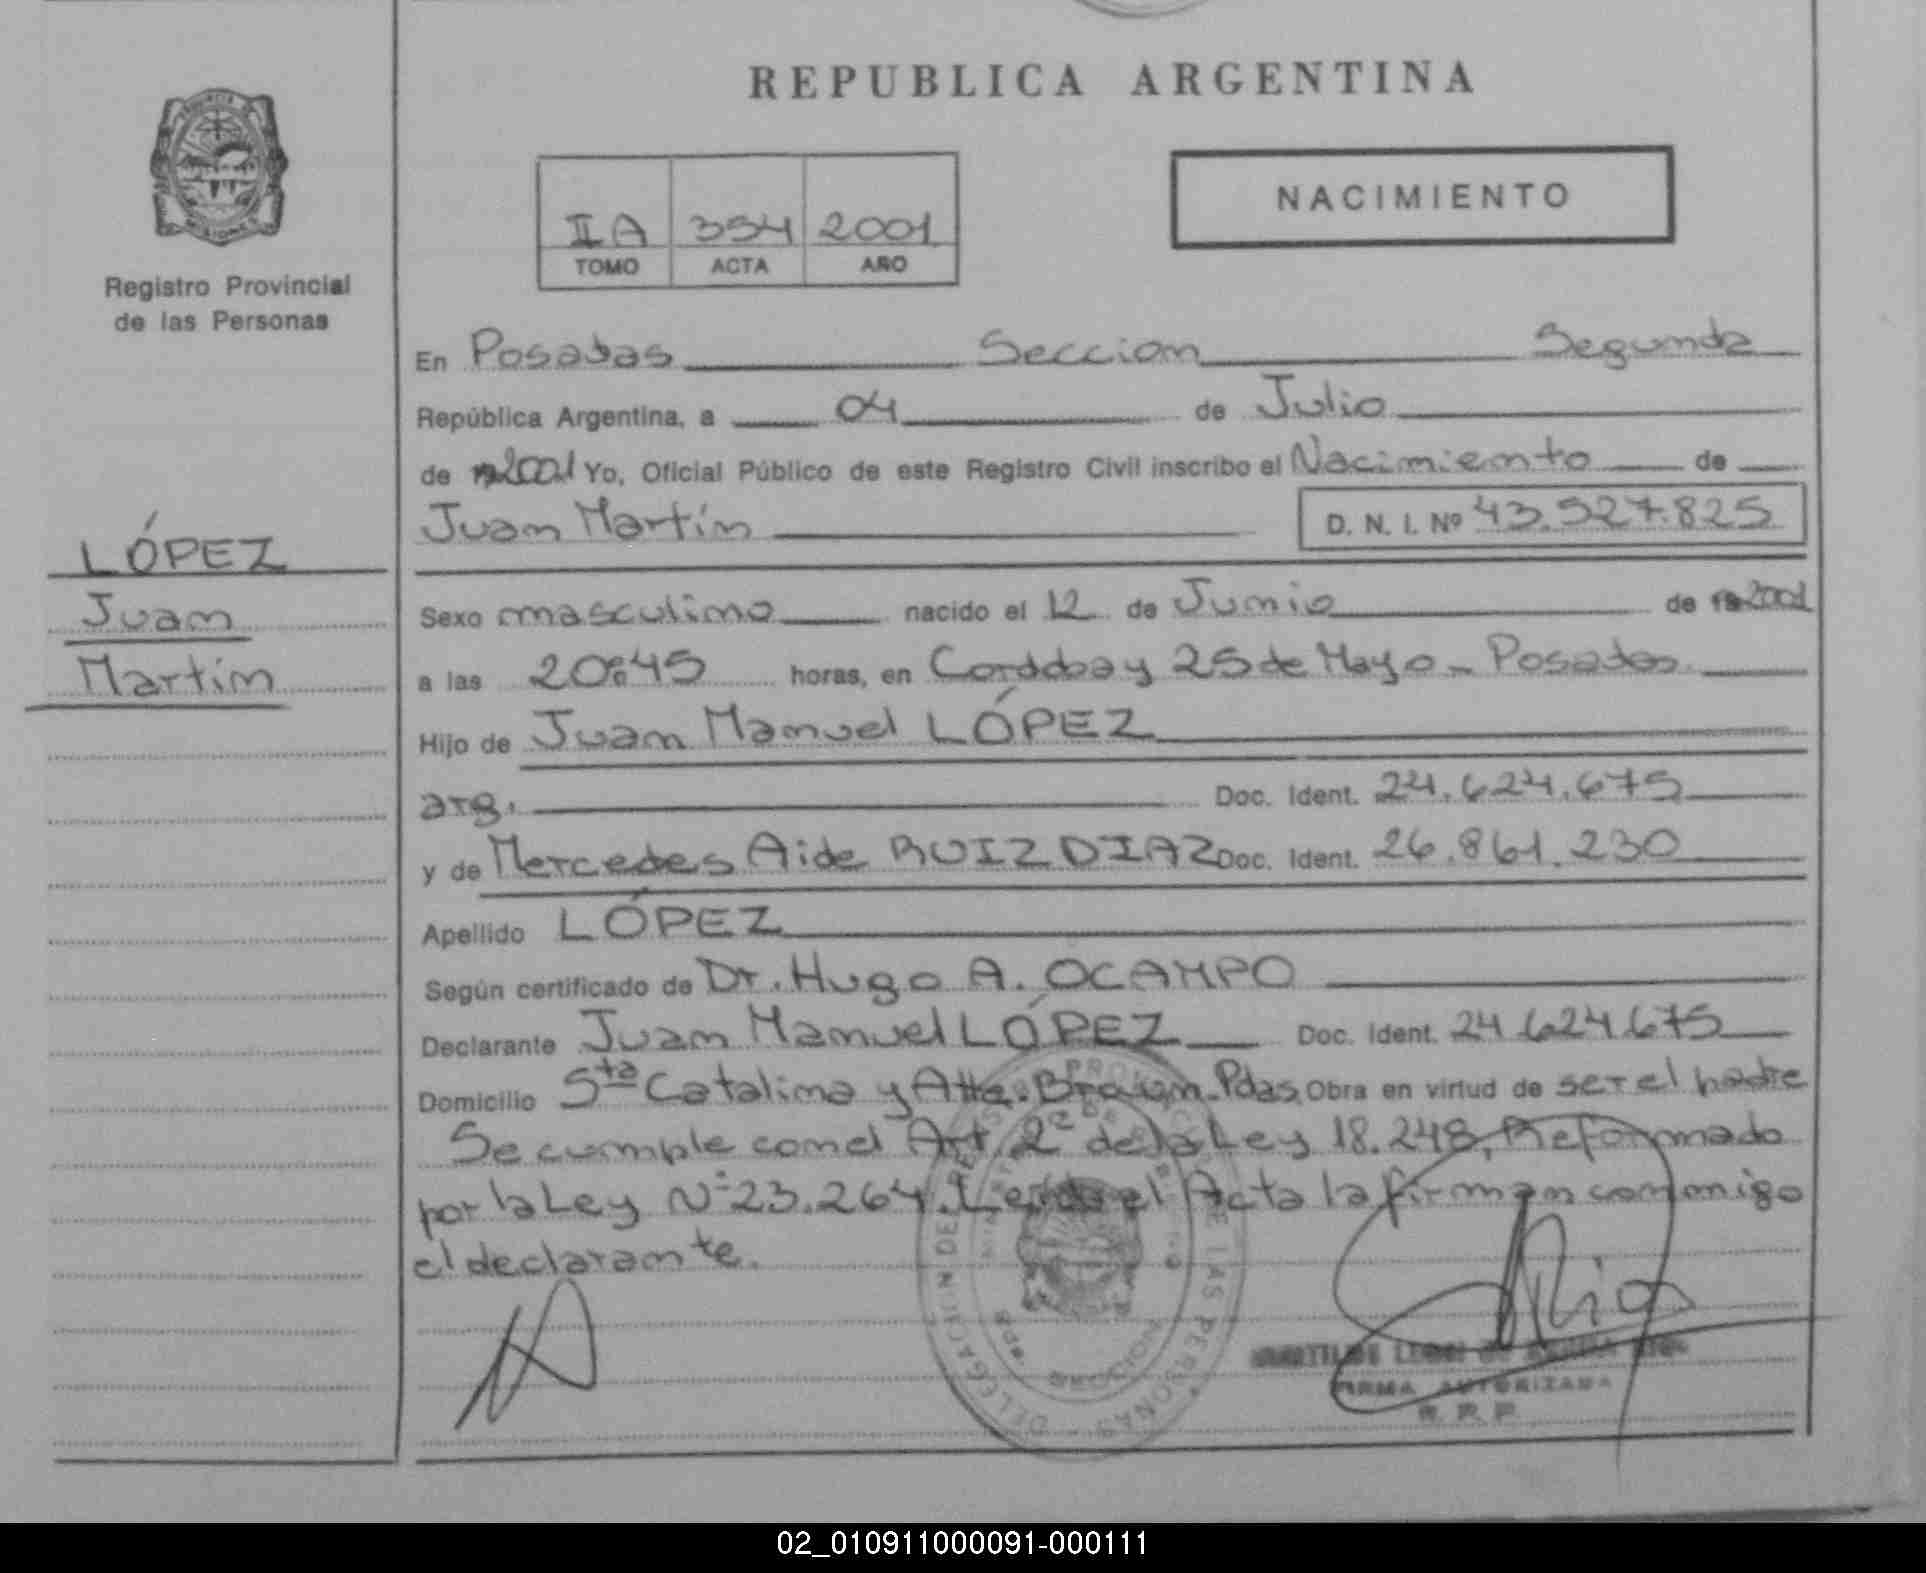 REPUBLICA ARGENTINA
NACIMIENTO
IIA 354 2001
TOMO ACTA AÑO
Registro Provincial
de las Personas
LÓPEZ
Juan
Martín
En Posadas Seccion Segunda
República Argentina, a 04 de Julio
de 2001 Yo, Oficial Público de este Registro Civil inscribo el Nacimiento de
Juan Martín D. N. I. Nº 43.527.825
Sexo masculino nacido el 12 de Junio de 2001
a las 20:45 horas, en Cordoba y 25 de Mayo - Posadas
Hijo de Juan Manuel LÓPEZ
arg. Doc. Ident. 24.624.675
y de Mercedes Aide RUIZ DIAZ Doc. Ident. 26.861.230
Apellido LÓPEZ
Según certificado de Dr. Hugo A. OCAMPO
Declarante Juan Manuel LÓPEZ Doc. Ident. 24.624.675
Domicilio Sta Catalina y Alte. Brown. Pdas. Obra en virtud de ser el padre
Se cumple con el Art. 2º de la Ley 18.248, Reformado
por la Ley Nº 23.264. Leida el Acta la firman conmigo
el declarante.
FIRMA AUTORIZADA
R. P. P.
02_010911000091-000111